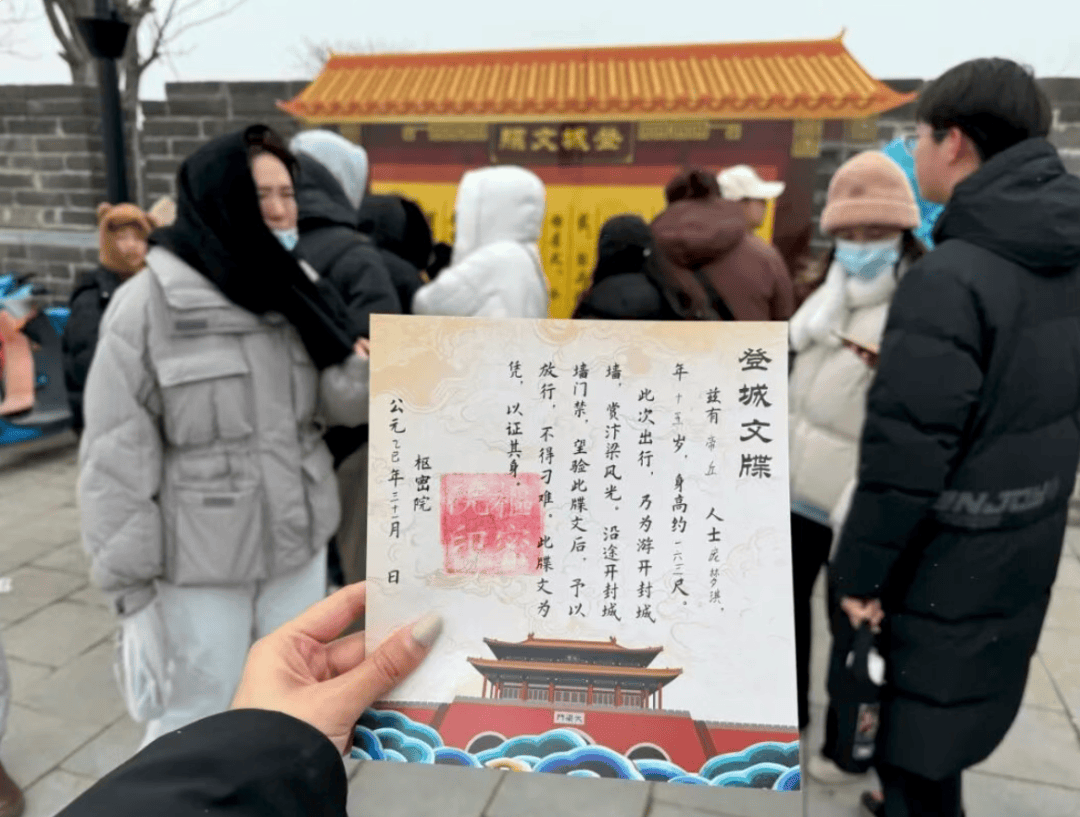 登城文牒
登城文牒
兹有 帝丘 人士
年十五岁，身高约一六三尺。
此次出行，乃为游开封城
墙，赏汴梁风光，沿途开封城
墙门禁，望验此牒文后，予以
放行，不得刁难，此牒文为
凭，以证其身。
枢密院
公元乙巳年三十一月 日
大梁门